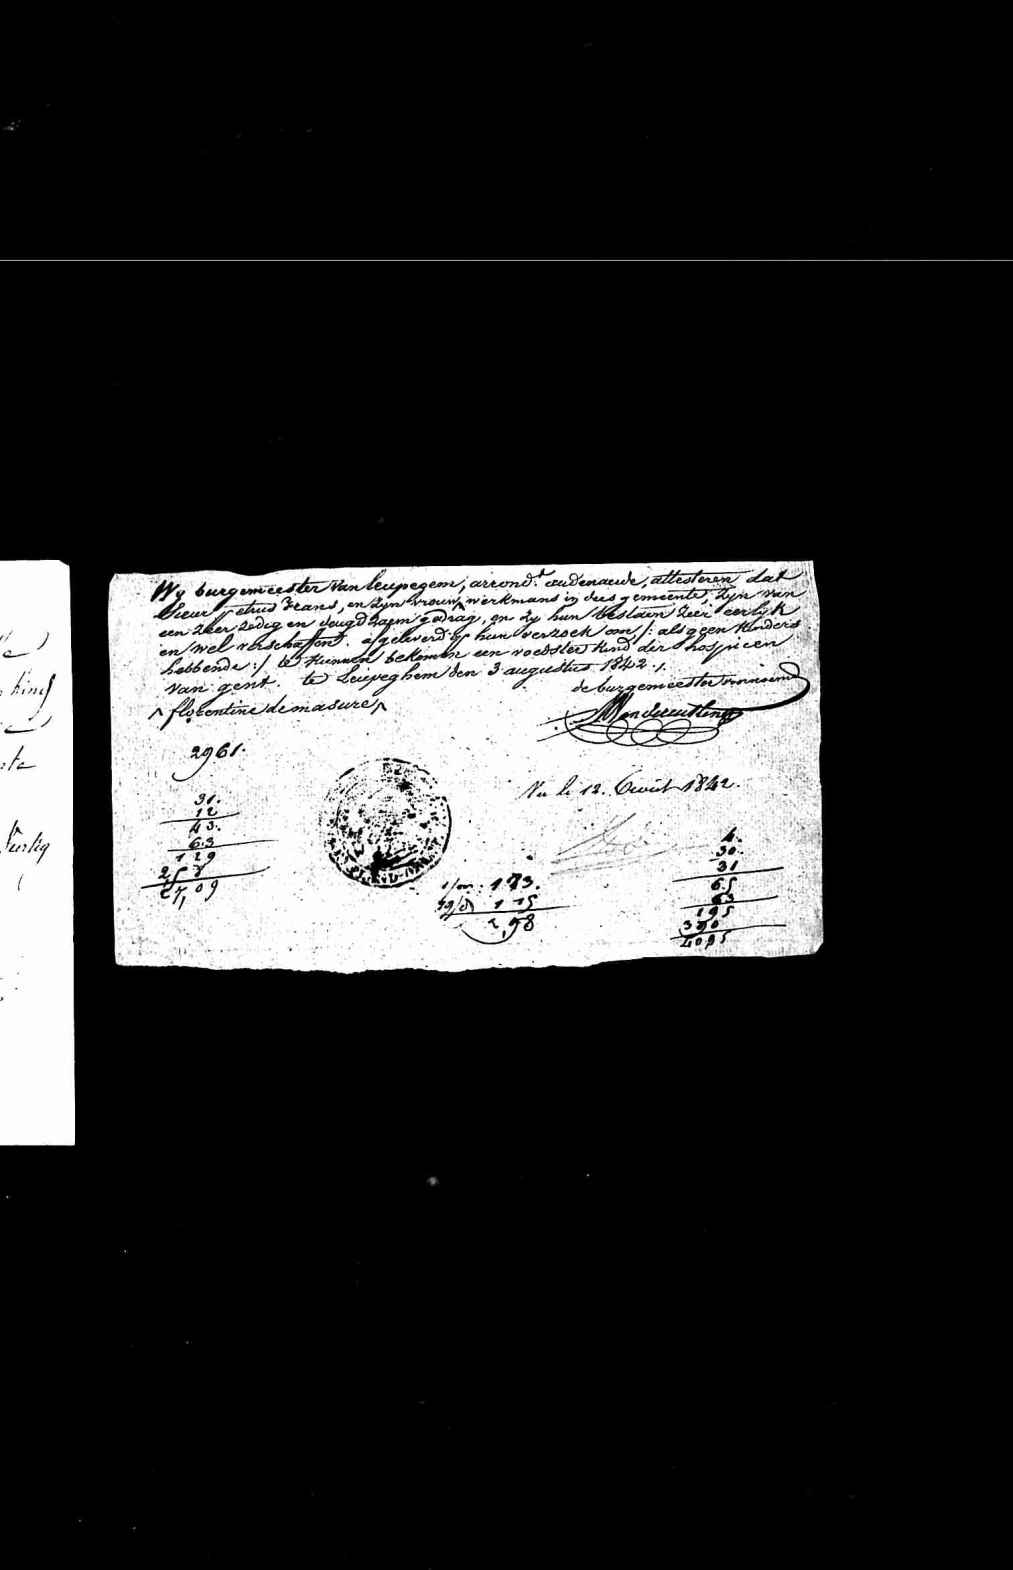 Wy burgemeester van leupegem, arrond.t audenaerde, attesteren dat
sieur petrus frans, en zyn vrouw ^ werkmans in dees gemeente, zyn van
een zeer zedig en deugdzaem gedrag, en zy hun bestaen zeer eerlyk
en wel verschaffen. afgeleverd op hun verzoek om /: als geen kinders
hebbende :/ te kunnen bekomen een voedster kind der hospicen
van gent. te Leupeghem den 3 augustus 1842.
de burgemeester voornoemd
^ florentine demasure ^
2961.
Vu le 12. Août 1842.
31.
12
43.
63
129
258
27,09
173.
115
2,98
4.
30.
31
65
63
195
390
4095